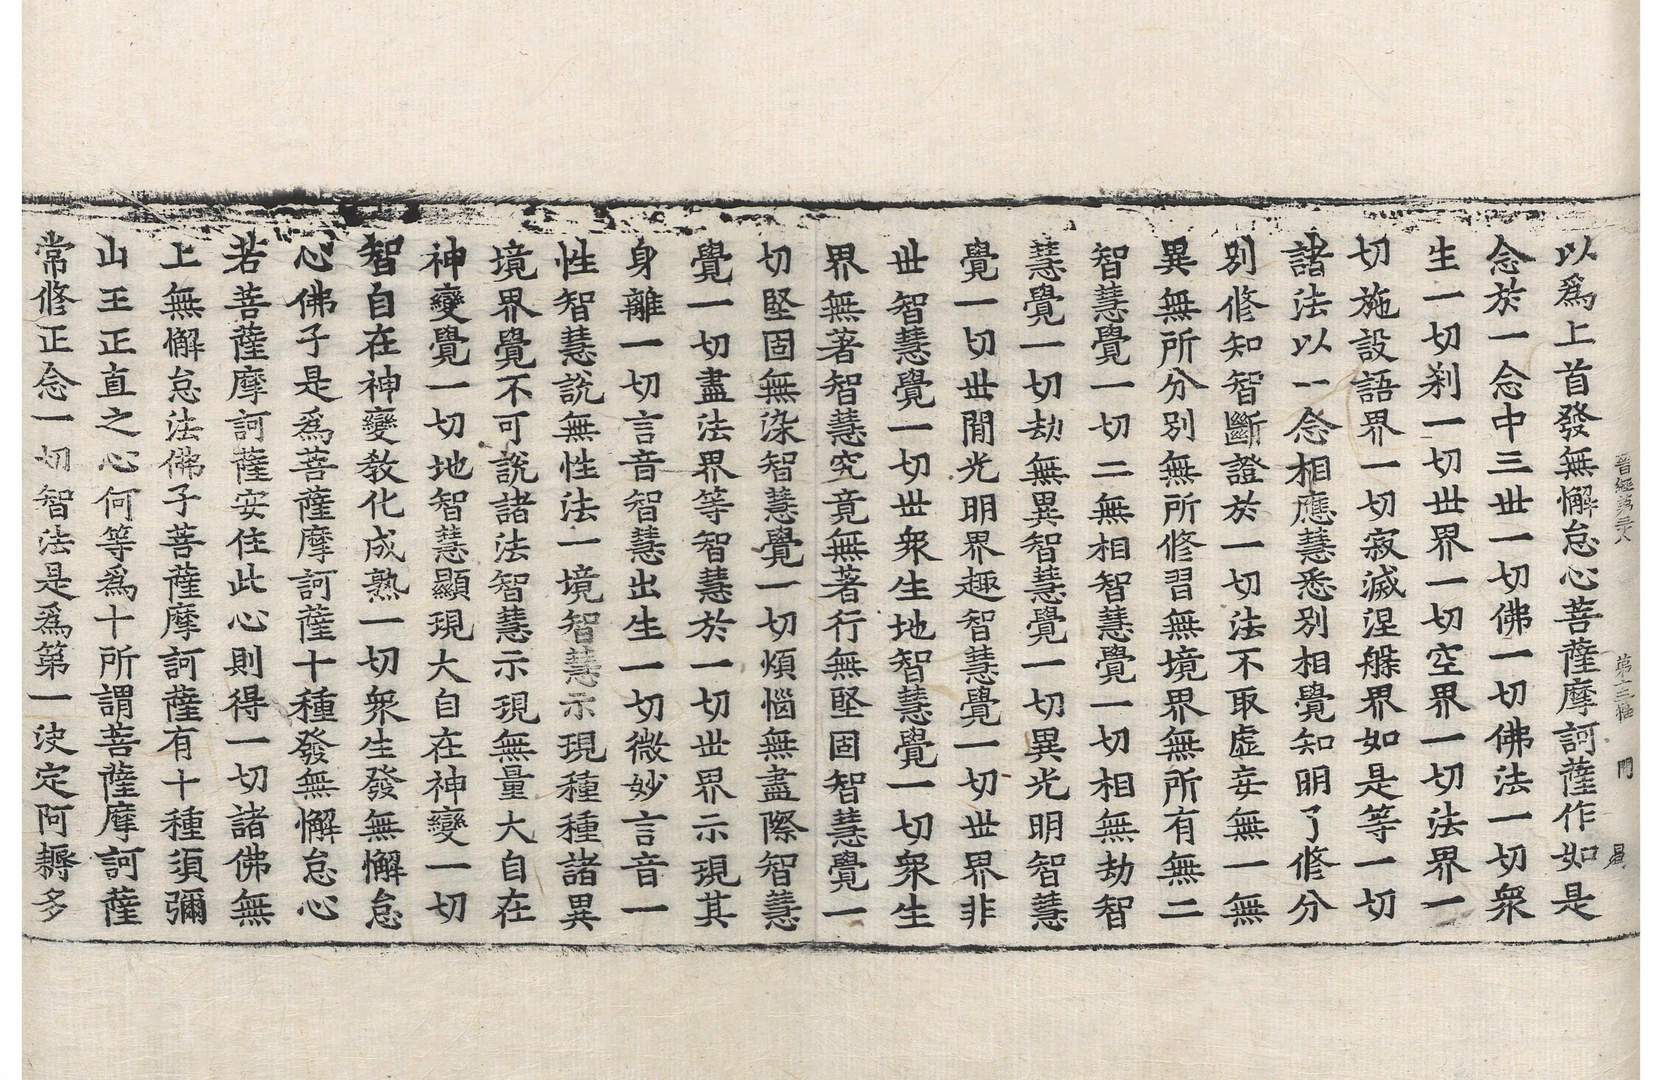 晉經第三十八 第十二幅 門
以爲上首發無懈怠心菩薩摩訶薩作如是
念於一念中三世一切佛一切佛法一切衆
生一切刹一切世界一切空界一切法界一
切施設語界一切寂滅涅槃界如是等一切
諸法以一念相應慧悉別相覺知明了修分
別修知智斷證於一切法不取虛妄無一無
異無所分別無所修習無境界無所有無二
智慧覺一切二無相智慧覺一切相無劫智
慧覺一切劫無異智慧覺一切異光明智慧
覺一切世間光明界趣智慧覺一切世界非
世智慧覺一切世衆生地智慧覺一切衆生
界無著智慧究竟無著行無堅固智慧覺一
切堅固無染智慧覺一切煩惱無盡際智慧
覺一切盡法界等智慧於一切世界示現其
身離一切言音智慧出生一切微妙言音一
性智慧說無性法一境智慧示現種種諸異
境界覺不可說諸法智慧示現無量大自在
神變覺一切地智慧顯現大自在神變一切
智自在神變教化成熟一切衆生發無懈怠
心佛子是爲菩薩摩訶薩十種發無懈怠心
若菩薩摩訶薩安住此心則得一切諸佛無
上無懈怠法佛子菩薩摩訶薩有十種須彌
山王正直之心何等爲十所謂菩薩摩訶薩
常修正念一切智法是爲第一決定阿耨多